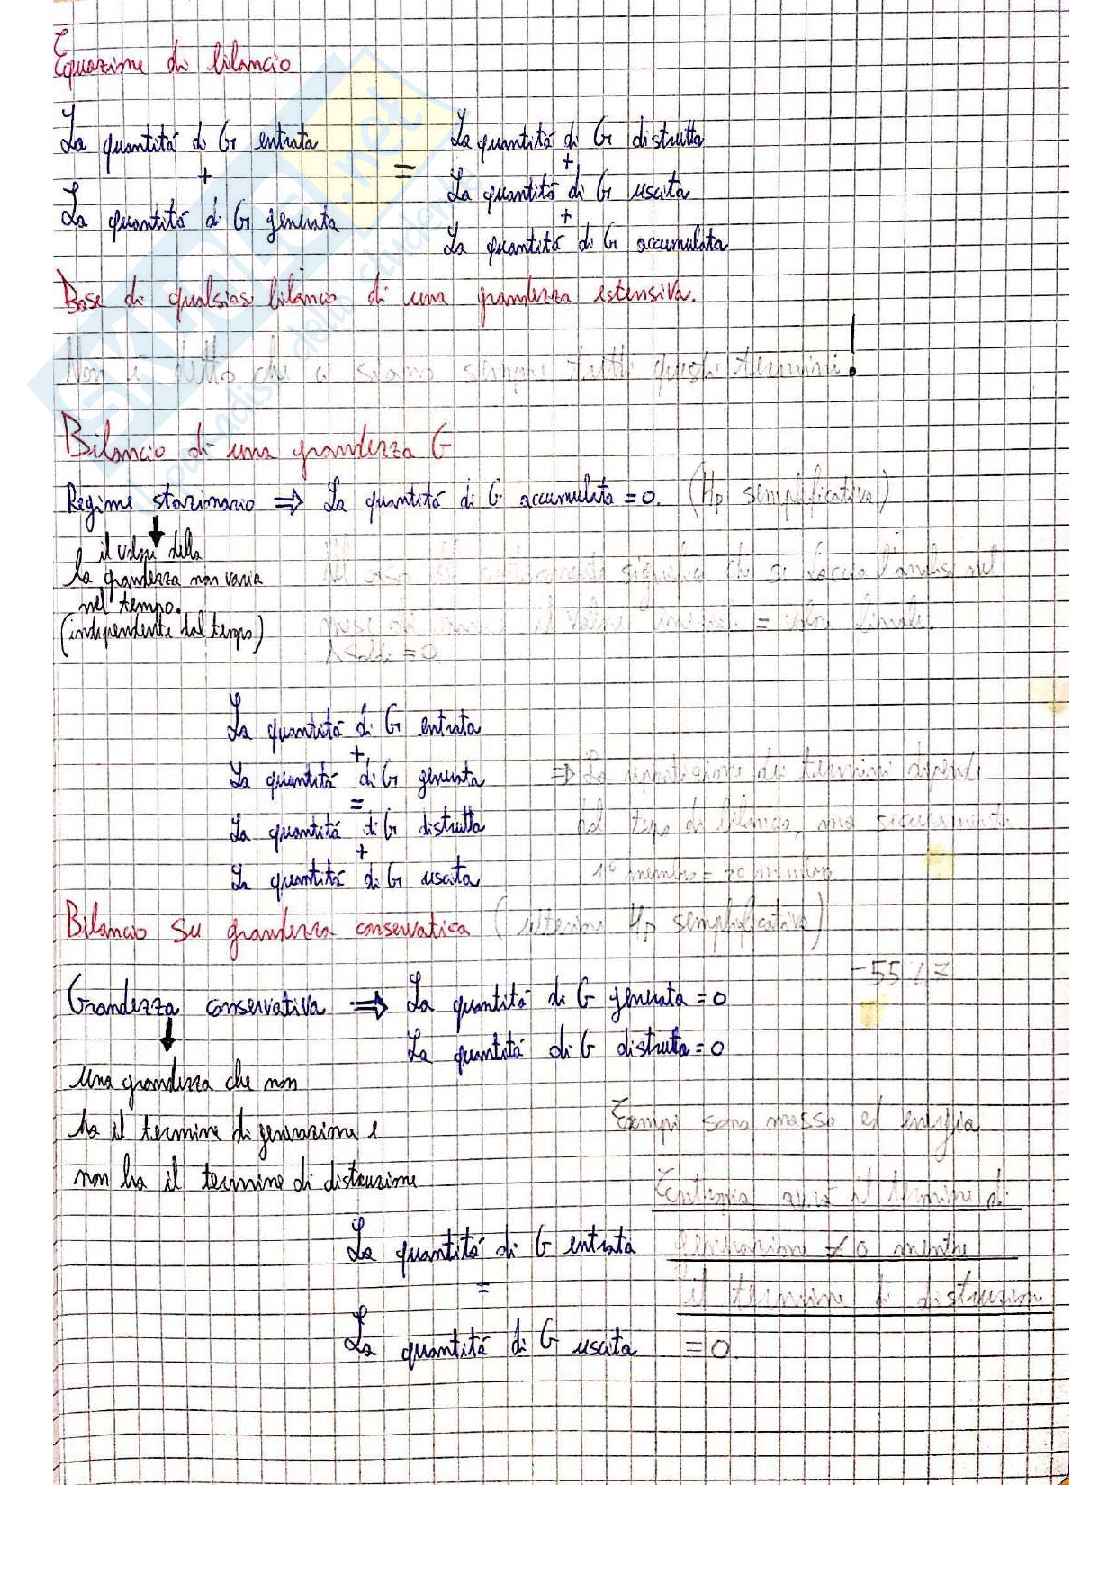 Equazione di bilancio
La quantitá di G entrata
+
La quantitá di G generata
=
La quantitá di G distrutta
+
La quantitá di G uscita
+
La quantitá di G accumulata
Base di qualsiasi bilancio di una grandezza estensiva.
Non è detto che ci siano sempre tutti questi termini!
Bilancio di una grandezza G
Regime stazionario ⇒ La quantitá di G accumulata = 0. (Hp semplificativa)
↓
il valore della
la grandezza non varia
nel tempo.
(independente dal tempo)
= 0
La quantitá di G entrata
+
La quantitá di G generata
=
La quantitá di G distrutta
+
La quantitá di G uscita
⇒ termini
dal tipo di bilancio, ma sicuramente
1° membro = 2° membro
Bilancio su grandezza conservativa (ulteriore Hp semplificativa)
Grandezza conservativa ⇒ La quantitá di G generata = 0
La quantitá di G distrutta = 0
↓
Una grandezza che non
ha il termine di generazione e
non ha il termine di distruzione
Esempi sono massa ed energia
L'entropia avrá il termine di
generazione ≠ 0 mentre
il termine di distruzione
= 0.
La quantitá di G entrata
=
La quantitá di G uscita